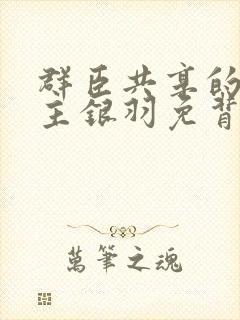 群臣共享的
主银羽免背
萬筆之魂